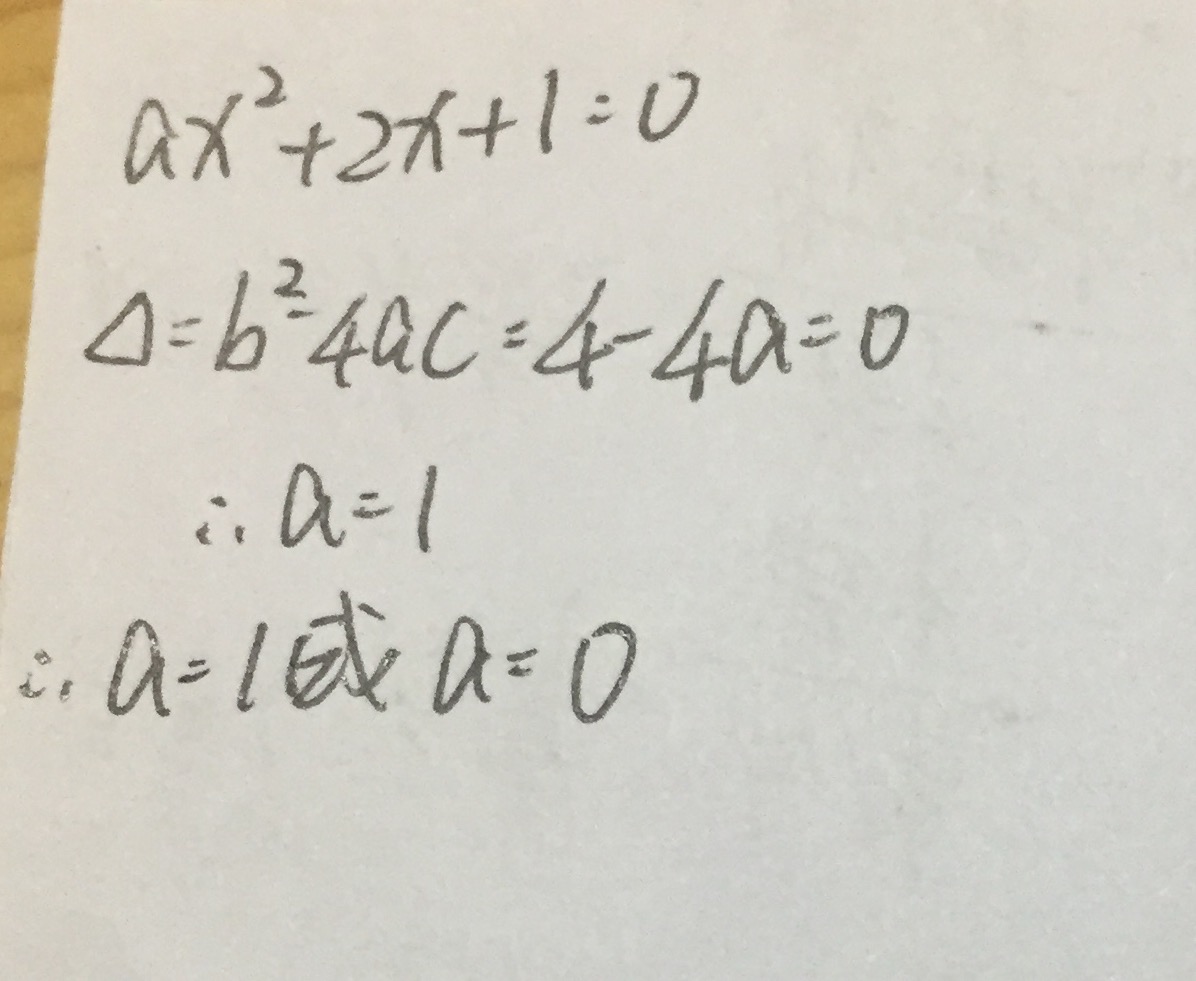 ax²+2x+1=0
△=b²-4ac=4-4a=0
∴a=1
∴a=1或a=0